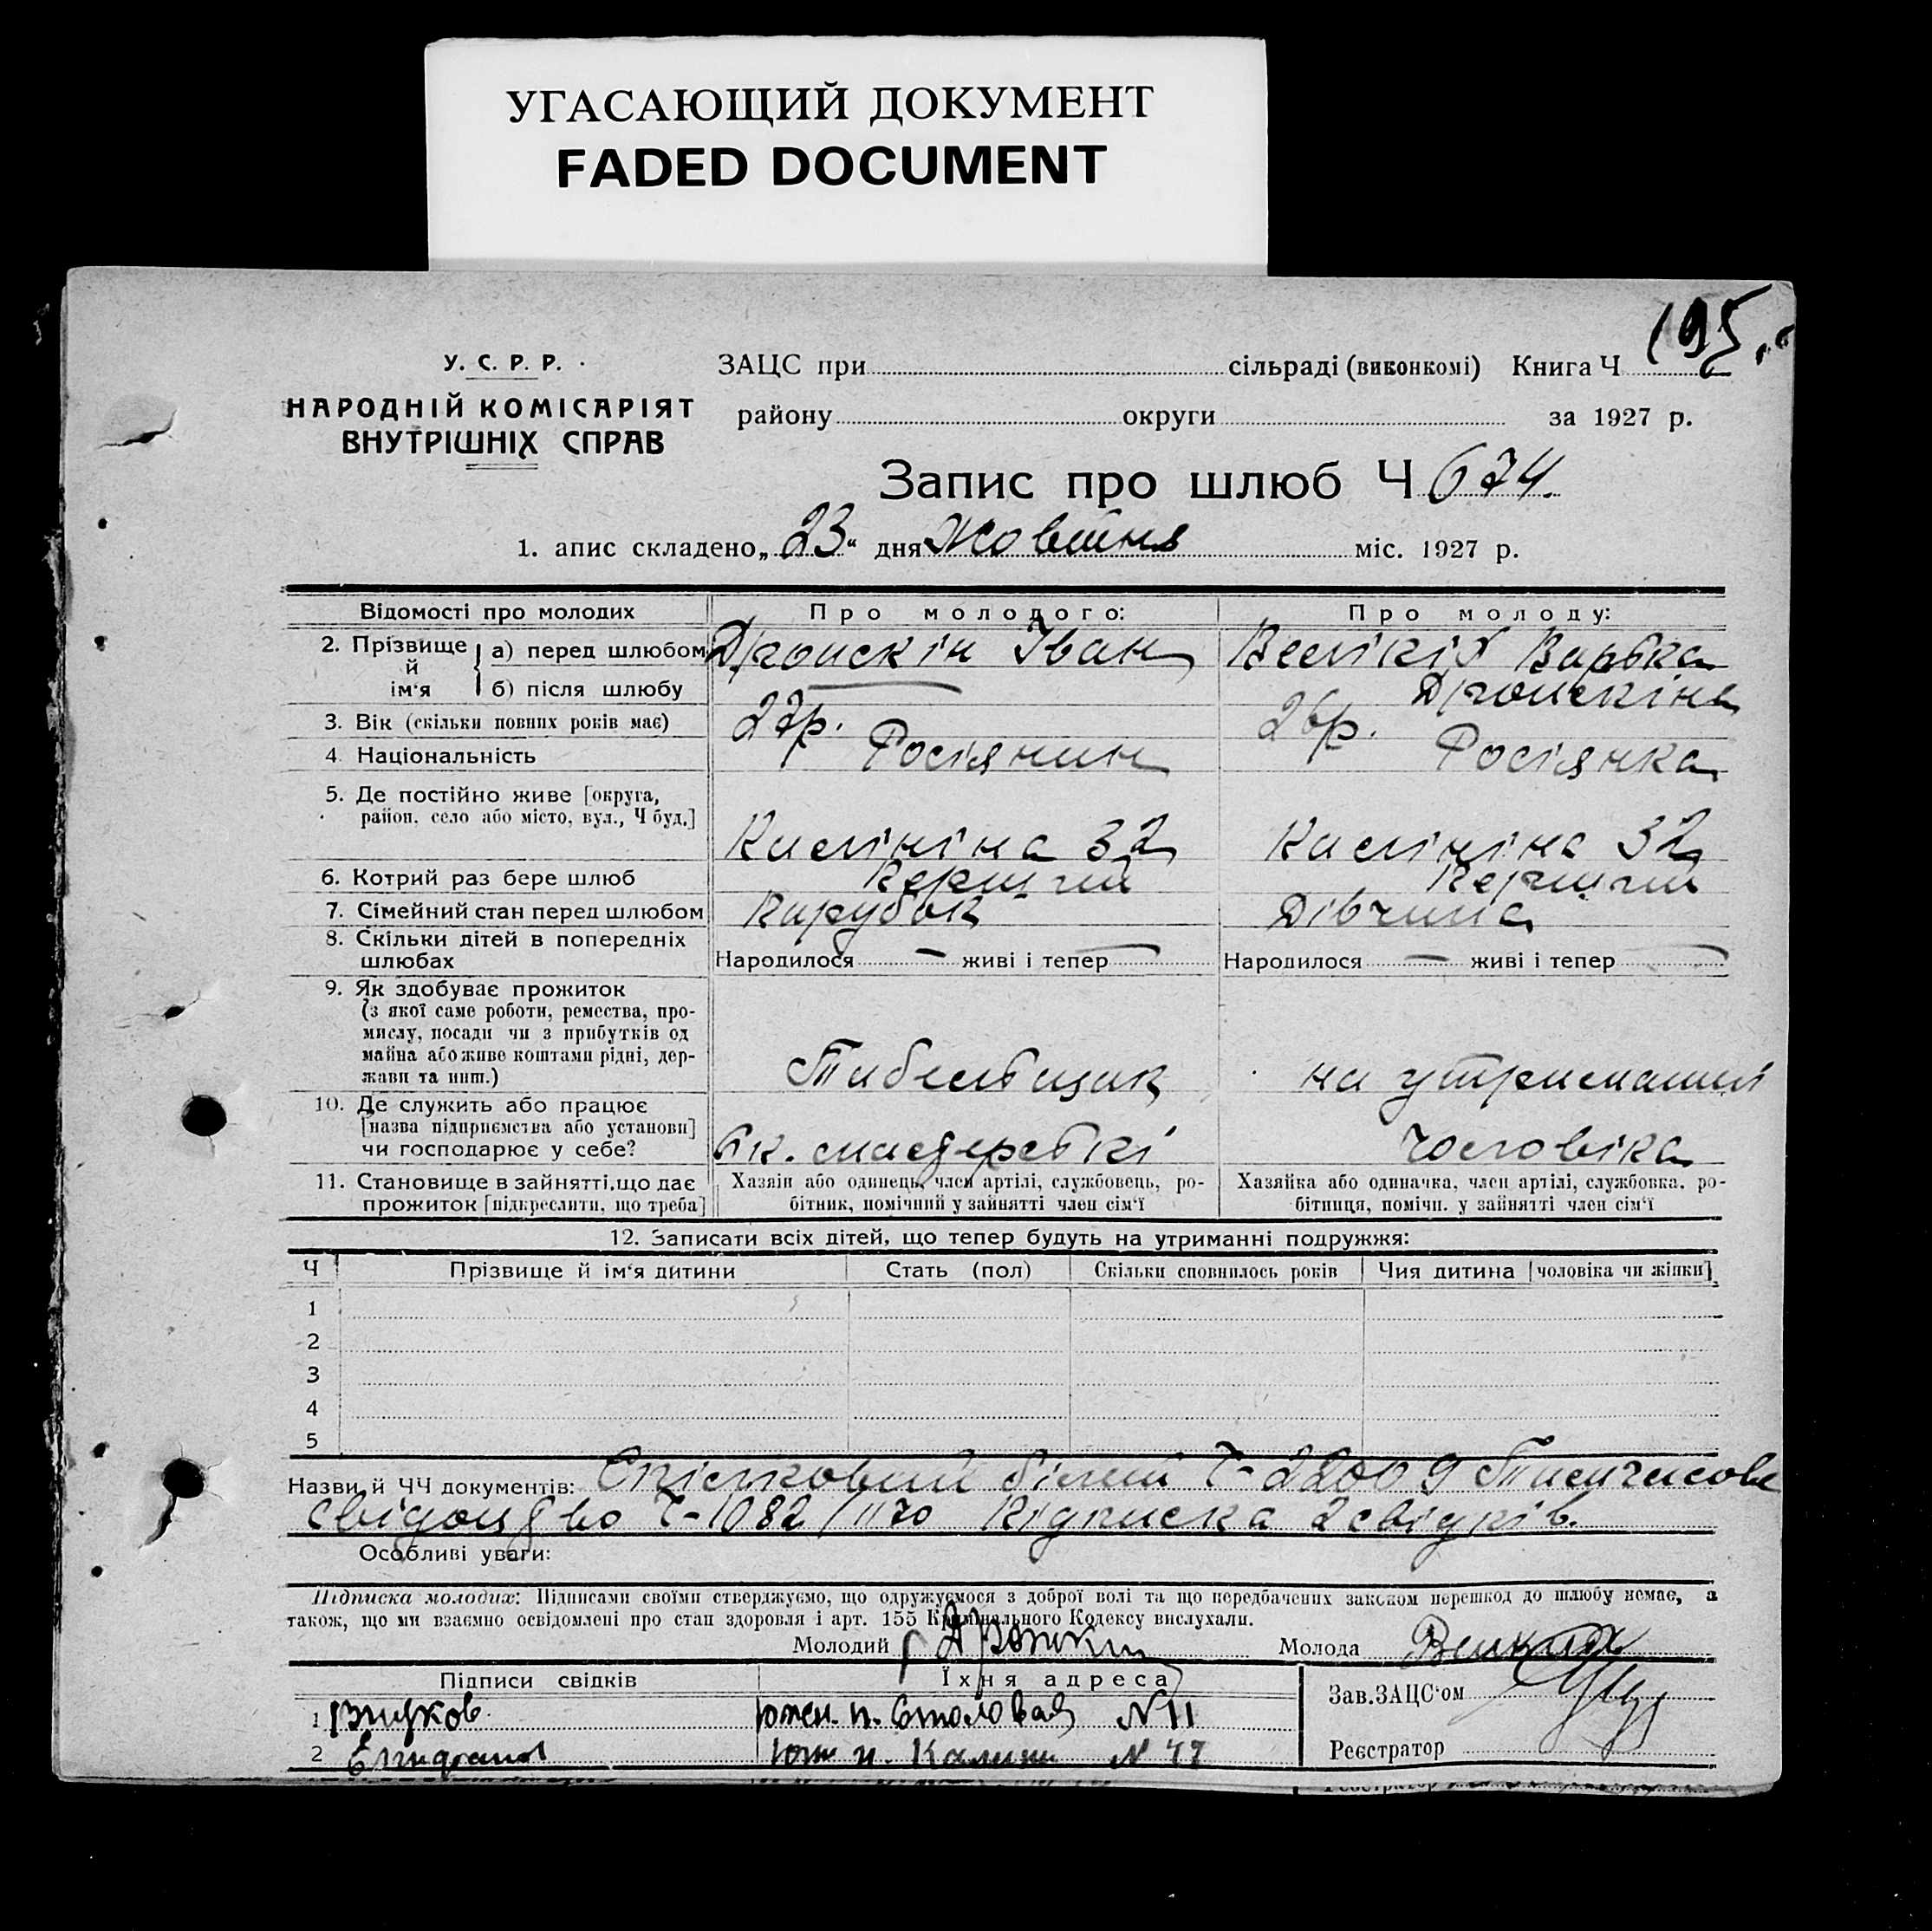 УГАСАЮЩИЙ ДОКУМЕНТ
FADED DOCUMENT
195
У. С. Р. Р.
НАРОДНІЙ КОМІСАРІЯТ
ВНУТРІШНІХ СПРАВ
ЗАЦС при сільраді (виконкомі) Книга Ч
району округи за 1927 р.
Запис про шлюб Ч 674.
1. апис складено „23“ дня Жовтня міс. 1927 р.
Відомості про молодих Про молодого: Про молоду:
2. Прізвище й ім'я а) перед шлюбом Іван Варвка
б) після шлюбу
3. Вік (скільки повних років має) 27р. 26р.
4. Національність Росіянин Росіянка
5. Де постійно живе [округа,
район, село або місто, вул., Ч буд.] Калініна 32 Калініна 32
6. Котрий раз бере шлюб Перший Перший
7. Сімейний стан перед шлюбом Парубок Дівчина
8. Скільки дітей в попередніх
шлюбах Народилося — живі і тепер — Народилося — живі і тепер —
9. Як здобуває прожиток
(з якої саме роботи, ремества, про-
мислу, посади чи з прибутків од
майна або живе коштами рідні, дер-
жави та инш.) Табельщик на утриманні
10. Де служить або працює
[назва підприємства або установи]
чи господарює у себе? чоловіка
11. Становище в зайнятті, що дає
прожиток [підкреслити, що треба]
Хазяїн або одинець, член артілі, службовець, ро-
бітник, помічний у зайнятті член сім'ї
Хазяйка або одиначка, член артілі, службовка, ро-
бітниця, помічн. у зайнятті член сім'ї
12. Записати всіх дітей, що тепер будуть на утриманні подружжя:
Ч Прізвище й ім'я дитини Стать (пол) Скільки сповнилось років Чия дитина [чоловіка чи жінки]
1
2
3
4
5
Назви й ЧЧ документів: Спілковий білет Ч-22009 Тимчасове
свідоцтво Ч-1082/1170 Підписка 2 свідків.
Особливі уваги:
Підписка молодих: Підписами своїми стверджуємо, що одружуємося з доброї волі та що передбачених законом перешкод до шлюбу немає, а
також, що ми взаємно освідомлені про стан здоровля і арт. 155 Кримінального Кодексу вислухали.
Молодий Молода
Підписи свідків Їхня адреса Зав. ЗАЦС'ом
1 Южн. п. Столовая №11
2 Южн п. Калинин № 47 Реєстратор